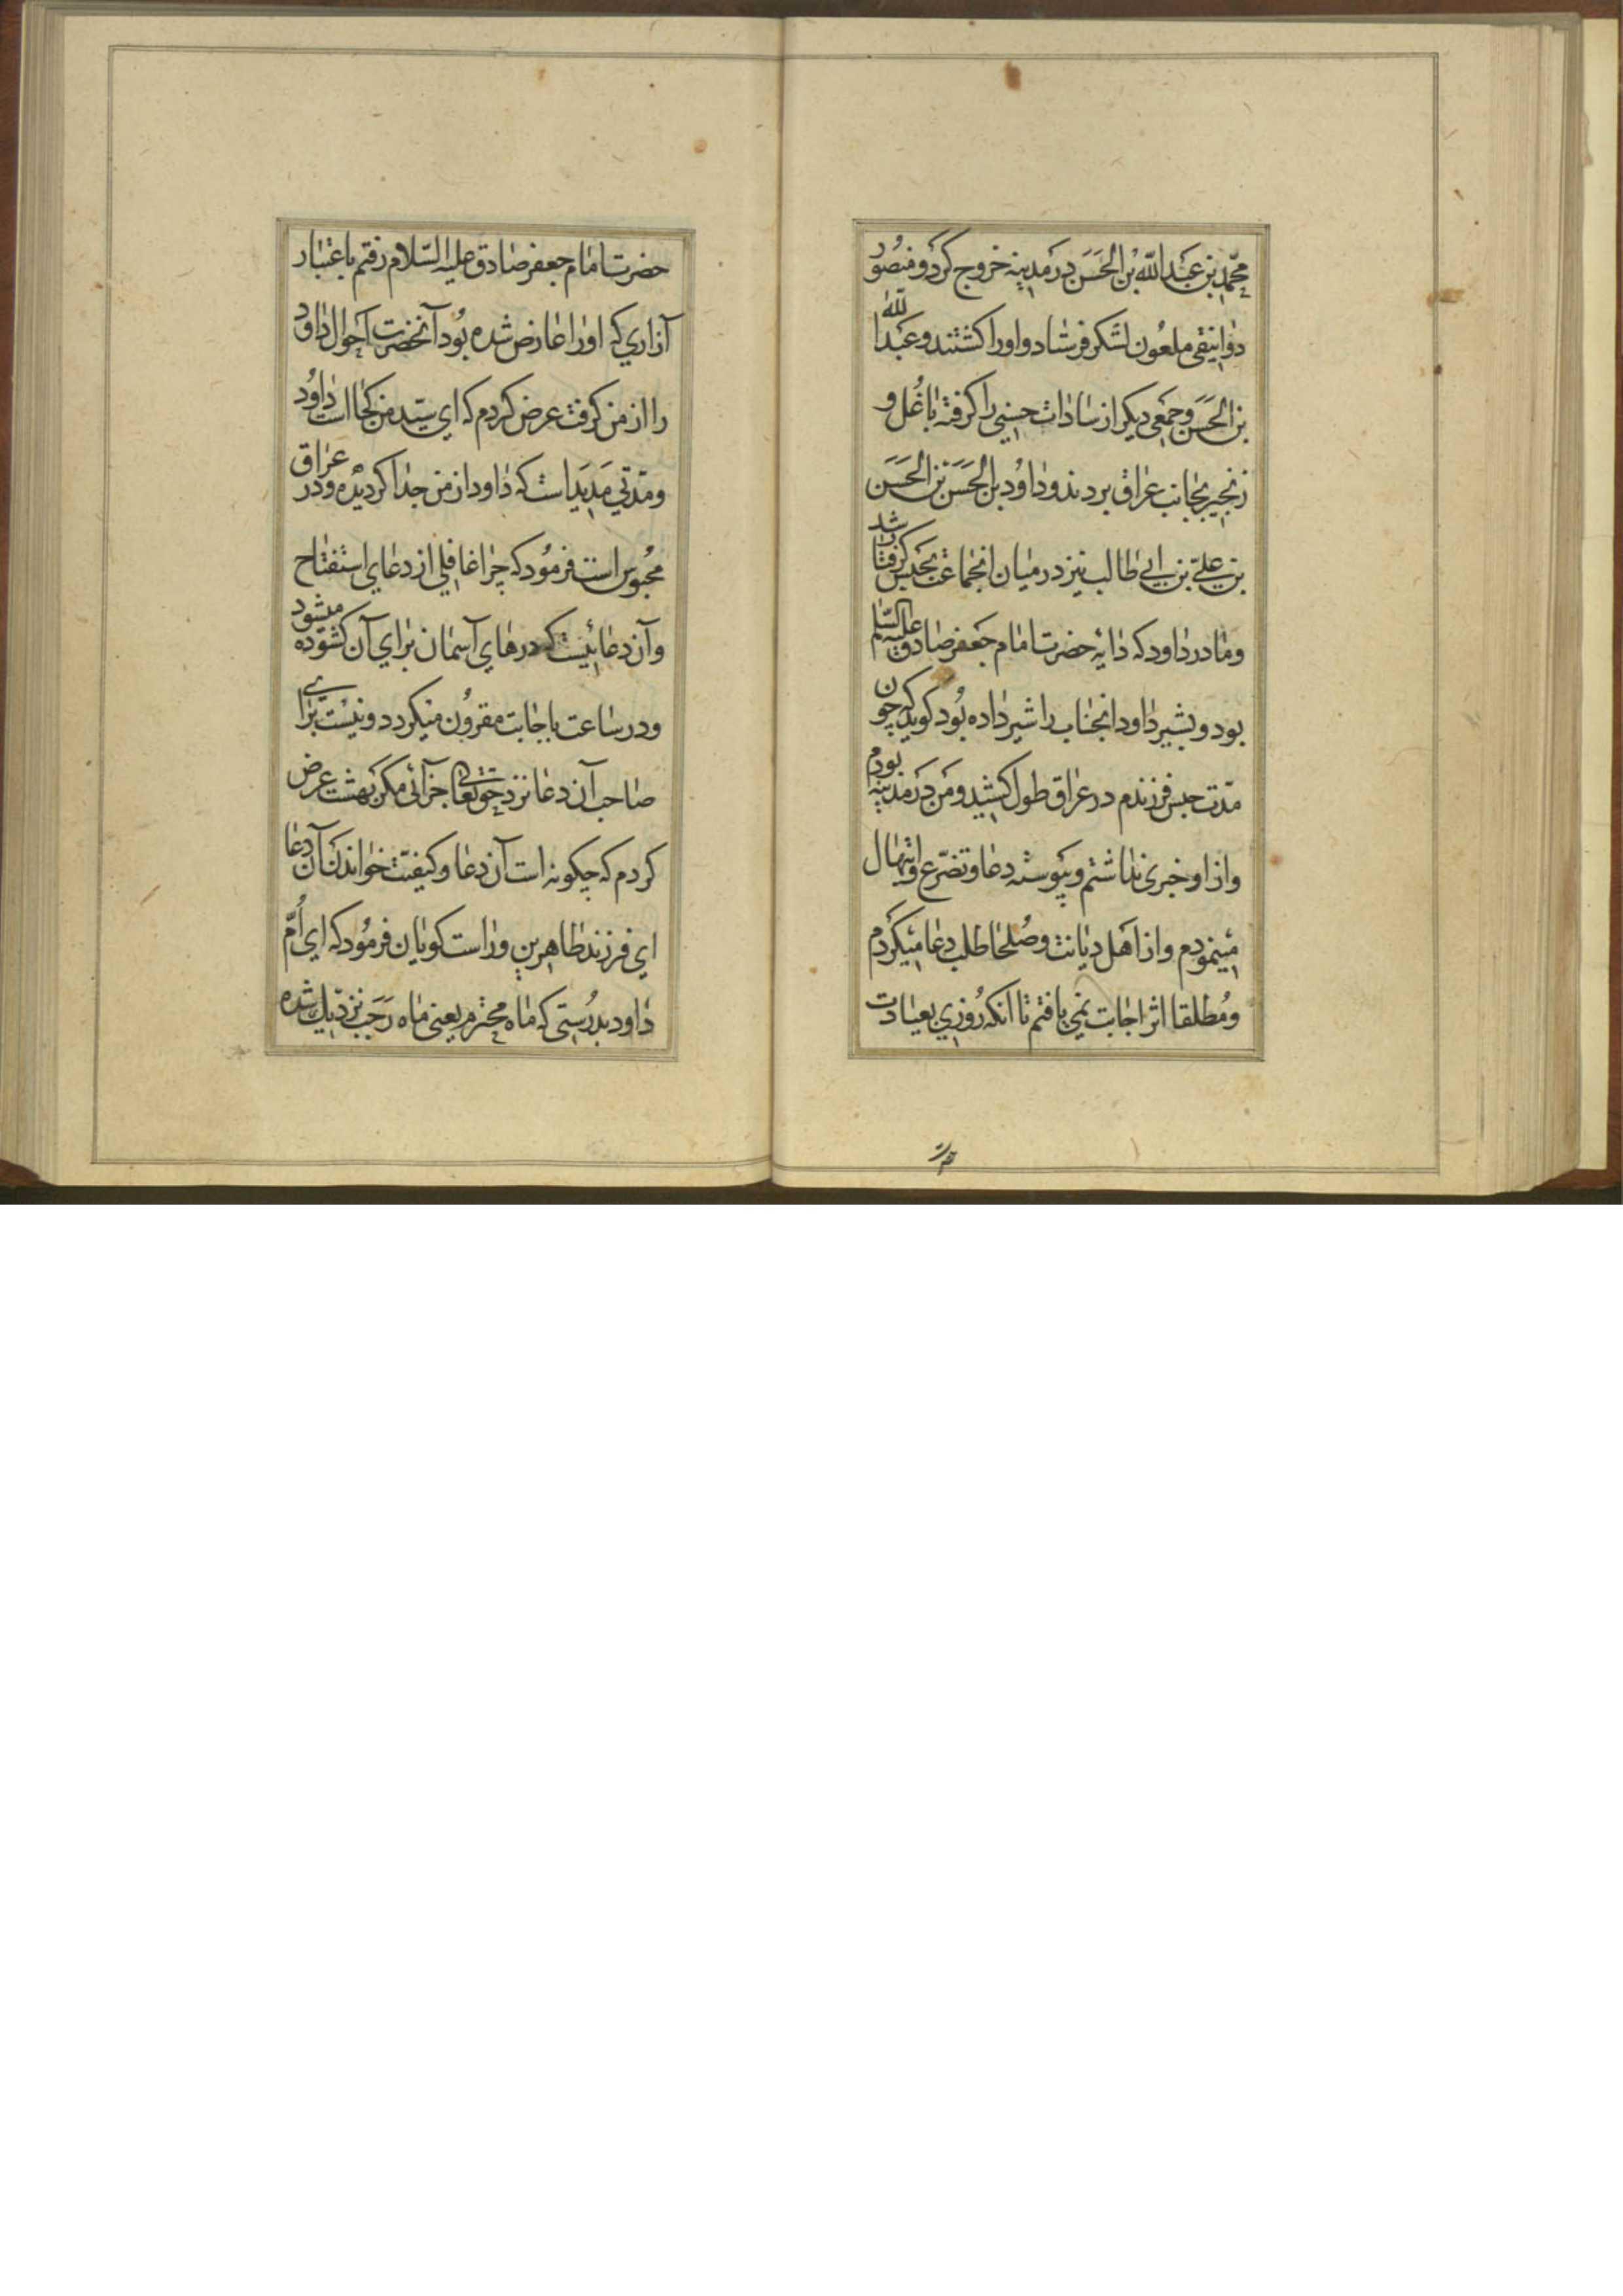 محمّد بن عبد الله بن الحَسَن در مدینه خروج کرد و منصُور
دوٰانیقی ملعُون لشکر فرستاد و اورا کشتند و عَبد الله
بن الحَسَن وجمعی دیکر از سٰادٰات حسنی را کرفته باغُل و
زنجیر بجٰانب عرٰاق بردند ودٰاوُد بن الحَسَن بن الحَسَن
بن علیّ بن ابی طالب نیز در میٰان انجمٰاعت بحبس کرفتار شد
ومٰادر دٰاود که دٰایه حضرت امٰام جَعفر صٰادق علیه السّلام
بود وبشیر دٰاود انجنٰاب را شیر دٰاده بُود کوید که چون
مدّت حبس فرزندم در عرٰاق طول کشید ومن در مدینه بودم
واز او خبری نداشتم وپیوسته دعٰا وتضرّع وابتهٰال
مینمودم واز اهل دیٰانت وصُلحٰا طلب دعٰا میکردم
ومُطلقا اثر اجٰابت نمی یٰافتم تٰا انکه رُوزی بعیٰادت
حضرت امٰام جعفر صٰادق علیه السّلام رفتم باعتبٰار
آزاری که اورا عٰارض شده بُود آنحضرت احوٰال دٰاود
را از من کرفت عرض کردم که ای سیّد من کجٰا است دٰاوُد
ومدّتی مَدید است که دٰاود از من جدٰا کردیده ودر عرٰاق
محبُوس است فرمُود که چرٰا غٰافلی از دعٰای استفتٰاح
وآن دعٰائیست که درهٰای آسمٰان برٰای آن کشوده میشود
ودر سٰاعت باجٰابت مقرون میکردد ونیست برٰای
صٰاحب آن دعٰا نزد حق تعٰالی جزآئی مکر بهشت عرض
کردم که چکونه است آن دعٰا وکیفیّت خوٰاندن آن دعٰا
ای فرزند طٰاهرین ورٰاست کویٰان فرمُود که ای اُمّ
دٰاود بدرُستی که مٰاه محترم یعنی مٰاه رَجَب نزدیك شده